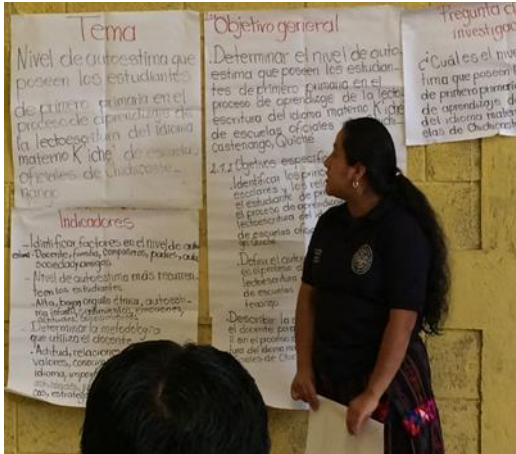 Tema
Nivel de autoestima que
poseen los estudiantes
de primero primaria en el
proceso de aprendizaje de
la lectoescritura del idioma
materno K'iche' de escuelas
oficiales de Chichicaste-
nango
Indicadores
- Identificar factores en el nivel de auto
estima - Docente, familia, compañeros, padres, aula
sociedad y amigos.
- Nivel de autoestima más recurren
te en los estudiantes.
- Alta, baja, orgullo étnico, autoesti-
ma infantil, sentimientos, emociones,
- Determinar la metodología
que utiliza el docente
- Actitud, relaciones
valores,
idioma,
Objetivo general
.Determinar el nivel de auto-
estima que poseen los estudian-
tes de primero primaria en el
proceso de aprendizaje de la lecto
escritura del idioma materno K'iche'
de escuelas oficiales
castenango, Quiché
2.1.2 Objetivos específ
. Identificar los prin
escolares y los
el estudiante de pri
el proceso de aprendiz
lectoescritura del i
de escuelas ofici
en Quiché
Definir el auto
en el proceso d
lectoescritura
de escuelas
tenango
.Describir la m
el docente para
en el proceso d
tura del idioma ma
ales de Chi
Pregunta d
investigac
¿Cuál es el niv
tima que poseen l
de primero primari
de aprendizaje d
del idioma mater
elas de Chichicast